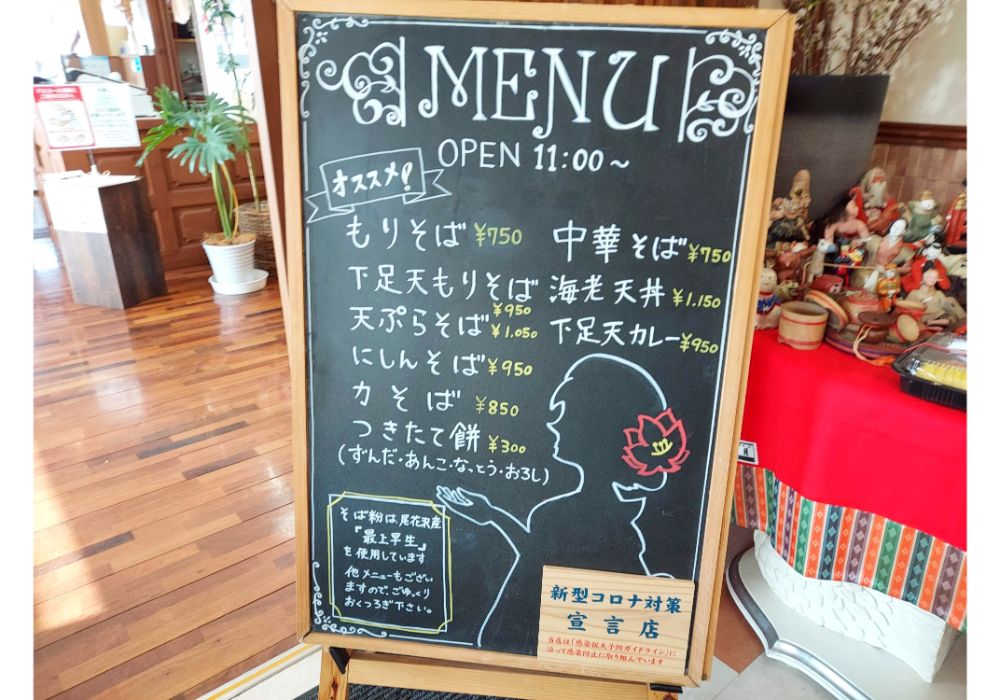 MENU
OPEN 11:00~
オススメ!
もりそば ¥750
下足天もりそば ¥950
天ぷらそば ¥1,050
にしんそば ¥950
力そば ¥850
つきたて餅 ¥300
(ずんだ・あんこ・なっとう・おろし)
中華そば ¥750
海老天丼 ¥1,150
下足天カレー ¥950
そば粉は、尾花沢産
『最上早生』
を使用しています
他メニューもござい
ますので、ごゆっくり
おくつろぎ下さい。
新型コロナ対策
宣言店
当店は「感染拡大予防ガイドライン」に
沿って感染防止に取り組んでいます